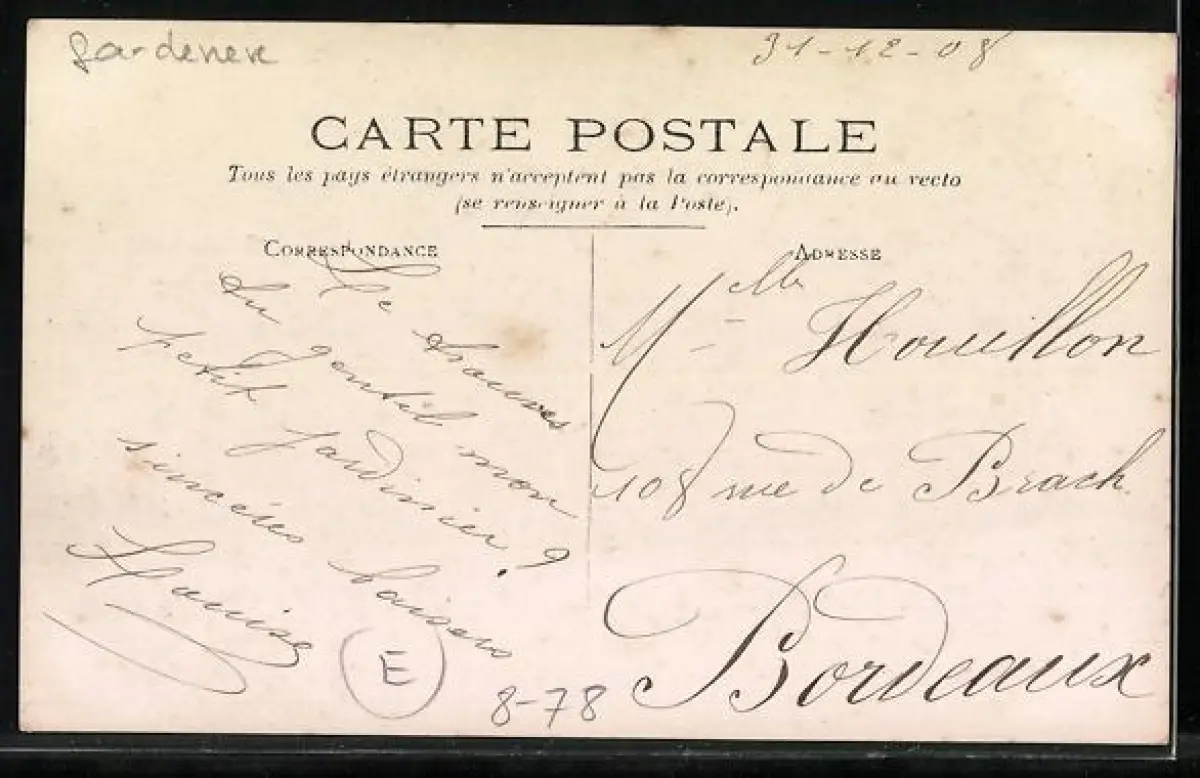 gardener
31-12-08
CARTE POSTALE
Tous les pays étrangers n'acceptent pas la correspondance au recto
(se renseigner à la Poste).
CORRESPONDANCE
Le trouves
tu gentil mon
petit jardinier ?
sincères baisers
Louise
E
8-78
ADRESSE
Mlle Houillon
108 rue de Brach
Bordeaux